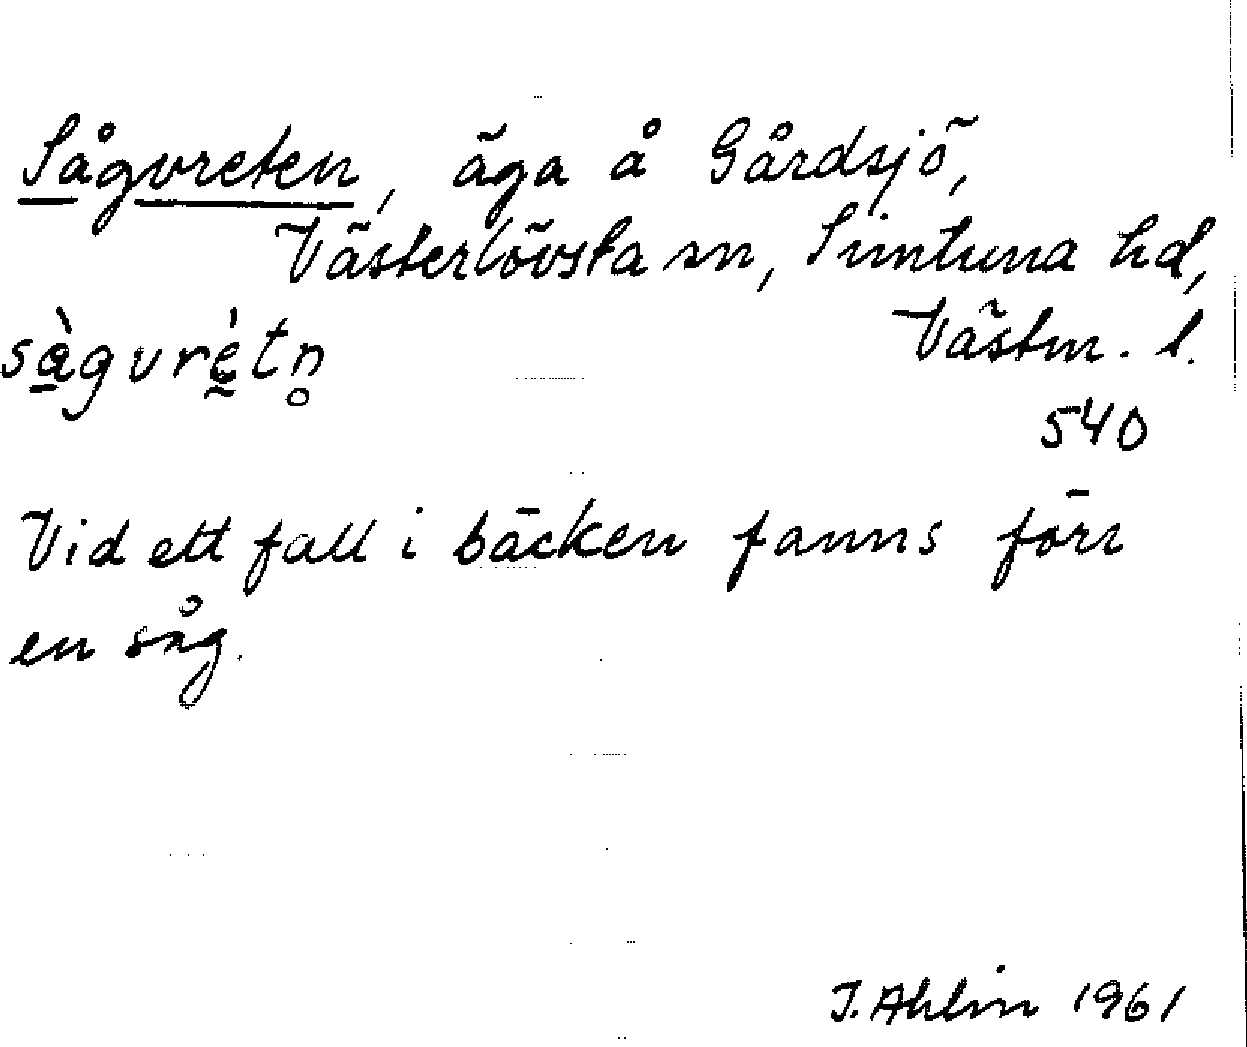 Sågvreten, äga å Gårdsjö,
Västerlövsta sn, Simtuna hd,
Västm. l.
sàgvrétn̥
540
Vid ett fall i bäcken fanns förr
en såg.
J. Ahlin 1961